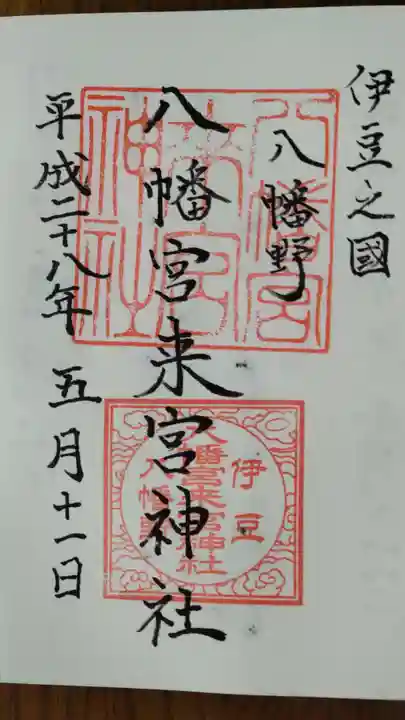 伊豆之國
八幡野
八幡宮来宮神社
平成二十八年 五月十一日
八幡宮
来宮
神社
伊豆
八幡宮来宮神社
八幡野